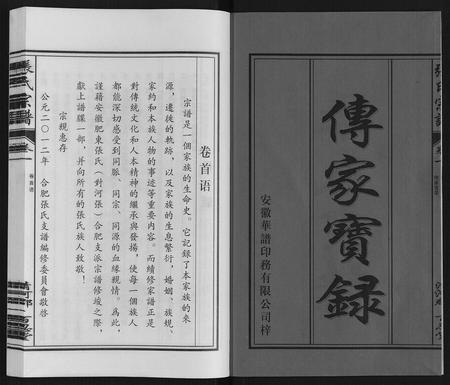 傳家寶録
安徽華譜印務有限公司梓
卷首语
宗譜是一個家族的生命史。它記録了本家族的來
源、遷徙的軌跡，以及家族的生息繁衍，婚姻、族規、
家約和本族人物的事迹等重要内容。而續修家譜正是
對傳統文化和人本精神的繼承與發揚，使每一個族人
都能深切感受到同脈、同宗、同源的血緣親情。為此，
謹藉安徽肥東張氏（對河張）合肥支派宗譜修竣之際，
獻上譜牒一部，并向所有的張氏族人致敬！
宗親惠存
公元二〇一二年 合肥張氏支譜編修委員會敬啓
張氏宗譜
卷首语